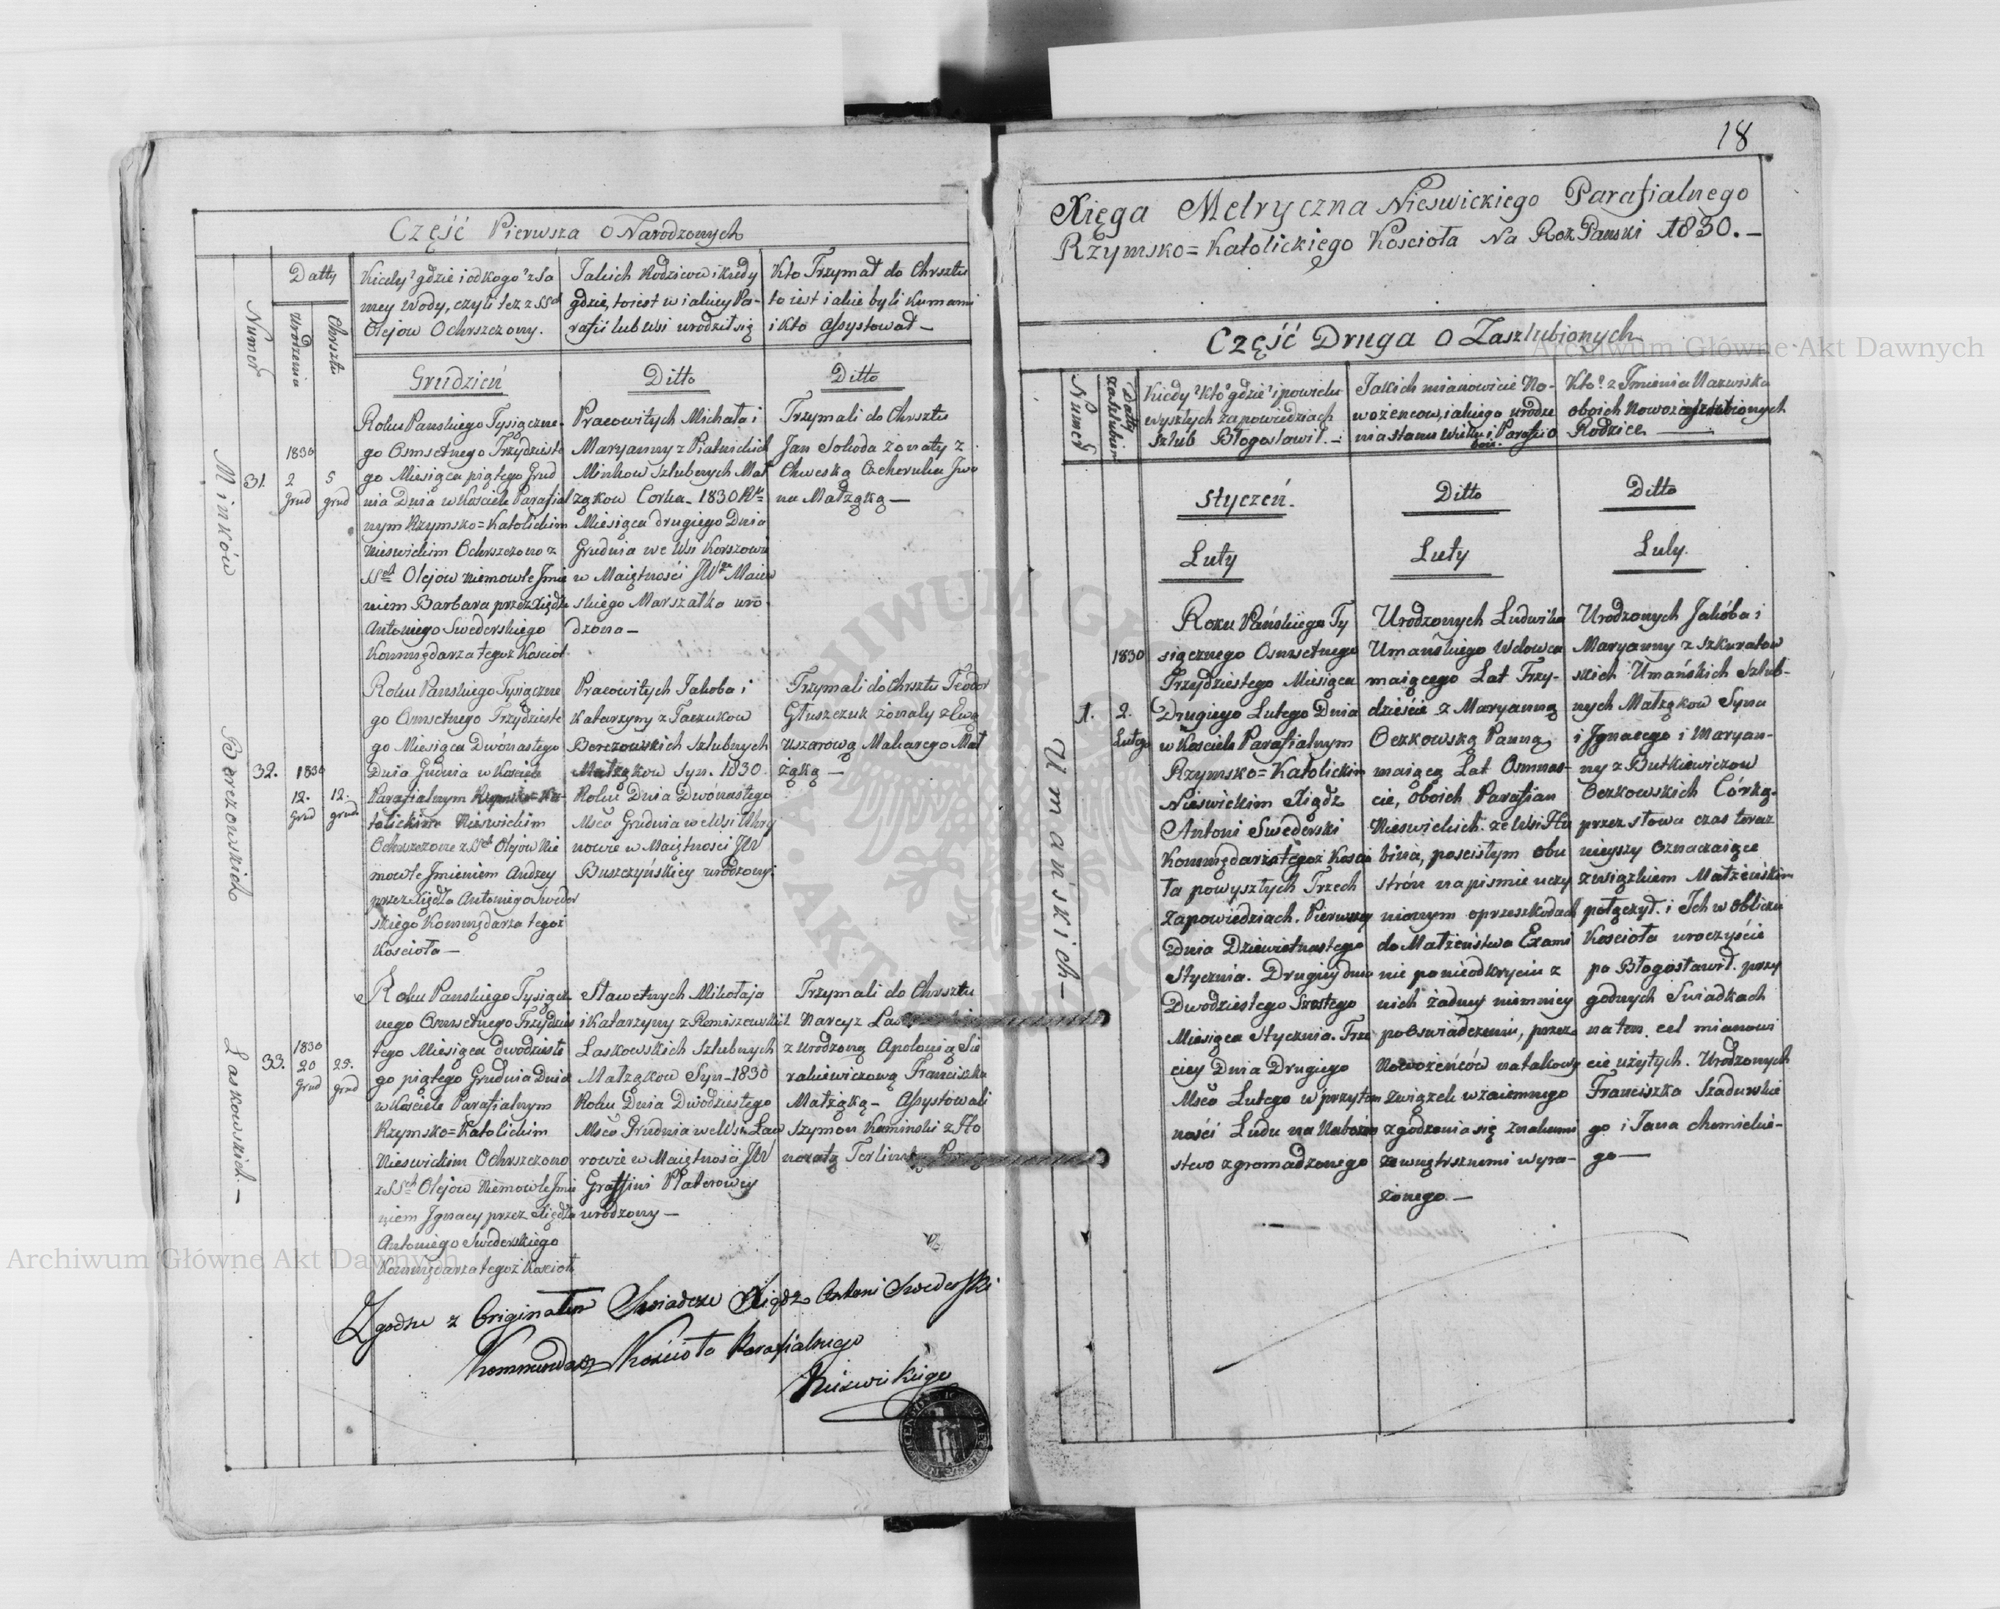 Część Pierwsza o Narodzonych
Numer
Datty
Urodzenia
Chrsztu
Kiedy? gdzie i od kogo? z Sa
mey Wody, czyli tez z SSch
Olejow Ochrszczony.
Jakich Rodzicow i kiedy
gdzie, to iest w iakiey Pa-
rafii lub Wsi urodził się
Kto Trzymał do Chrsztu
to iest iakie byli Kumami
i Kto Assystował —
Grudzień
Ditto
Ditto
Minków
31.
1830
2
Grud
5
grud
Roku Panskiego Tysiączne-
go Osmsetnego Trzydzieste
go Miesiąca piątego Grud
nia Dnia w Kosciele Parafial
nym Rzymsko=Katolickim
Nieswickim Ochrszczono z
SSch Olejow Niemowle Jmie
niem Barbara przez Xiędza
Antoniego Swederskiego
Kommędarza tegoz Koscioł.
Pracowitych Michała i
Maryanny z Pialuckich
Minkow Szlubnych Mał
ząkow Corka — 1830 Rku
Miesiąca drugiego Dnia
Grudnia we Wsi Korszowie
w Maiętności JW Maiew
skiego Marszałka uro-
dzona —
Trzymali do Chrsztu
Jan Sołoda żonaty z
Chweską Cacheruka Jwa
na Małząką —
Berezowskich
32.
1830
12.
Grud
12.
grud
Roku Panskiego Tysiączne
go Osmsetnego Trzydzieste
go Miesiąca Dwónastego
Dnia Grudnia w Kosciele
Parafialnym Rzymsko=Ka-
tolickim Nieswickim
Ochrszczono z SSch Olejów Nie
mowle Jmieniem Andrzey
przez Xiędza Antoniego Sweder
skiego Kommędarza tegoz
Kościoła —
Pracowitych Jakoba i
Katarzyny z Taczukow
Berezowskich Szlubnych
Małząkow Syn. 1830.
Roku Dnia Dwónastego
Msca Grudnia we Wsi Uhry
nowie w Maiętnosci JW
Buszczyńskiey urodzony.
Trzymali do Chrsztu Teodor
Głuszczuk żonaty z Ewą
Uszarową Makarego Mał
żąką —
Laskowskich. —
33.
1830
20
Grud
25.
grud
Roku Panskiego Tysiącz
nego Osmsetnego Trzydzies
tego Miesiąca dwodzieste
go piątego Grudnia Dnia
w Kosciele Parafialnym
Rzymsko=Katolickim
Nieswickim Ochrszczono
z SSch Olejow Niemowle Jmie
niem Ignacy przez Xiędza
Antoniego Swederskiego
Kommędarza tegoż Koscioł
Sławetnych Mikołaja
i Katarzyny z Romiszewskich
Laskowskich Szlubnych
Małząkow Syn — 1830
Roku Dnia Dwódziestego
Msca Grudnia we Wsi Ław
rowie w Maiętnosci JW
Graffini Platerowey
urodzony —
Trzymali do Chrsztu
Narcyz
z Urodzoną Apolonią Sie
rakiewiczową Franciszka
Małząką — Assystowali
Szymon Kaminski z Ho
noratą
Zgodnu z Originałem Swiadcze Xiądz Antoni Swederski
Kommendarz Kościoła Parafialnego
Nieswickiego
18
Xięga Metryczna Nieswickiego Parafialnego
Rzymsko=Katolickiego Kościoła Na Rok Panski 1830. —
Część Druga o Zaszlubionych
Numer
Datty
zaszlubin
Kiedy? Kto? gdzie? i powielu
wyszłych zapowiedziach
Szlub Błogosławił. —
Jakich mianowicie No-
wozencow, iakiego urodze
nia stanu Wieku i Parafio
Kto? z Jmienia Nazwiska
oboich Nowozaszlubionych
Rodzice —
Styczeń.
Ditto
Ditto
Luty
Luty
Luty.
Umańskich —
1.
1830
2.
Lutego
Roku Pańskiego Ty
siącznego Osmsetnego
Trzydziestego Miesiąca
Drugiego Lutego Dnia
w Kosciele Parafialnym
Rzymsko=Katolickim
Nieswickim Xiądz
Antoni Swederski
Kommędarz tegoż Koscio
ła powyszłych Trzech
Zapowiedziach. Pierwszey
Dnia Dziewietnastego
Stycznia. Drugiey dnia
Dwodziestego Szostego
Miesiąca Stycznia. Trze
ciey Dnia Drugiego
Msca Lutego w przytom
ności Ludu na Nabożeń
stwo zgromadzonego
Urodzonych Ludwika
Umańskiego Wdowca
maiącego Lat Trzy-
dzieście z Maryanną
Oczkowską Panną
maiącą Lat Osmnas-
cie, Oboich Parafian
Nieswickich. ze Wsi Hu
bina, poscisłym obu
strón na pismie uczy
nionym oprzeszkodach
do Małżeństwa Exami
nie ponieodkryciu z
nich żadney niemniey
poświadczeniu, przez
Nowożeńców natakowy
związek wzaiemnego
zgodzenia się znakami
zewnętrznemi wyra-
żonego. —
Urodzonych Jakóba i
Maryanny z Szkuratow
skich Umańskich Szlub-
nych Małząkow Syna
i Jgnacego i Maryan-
ny z Butkiewiczow
Oczkowskich Córką.
przez słowa czas teraz
nieyszy oznaczaiące
związkiem Małżeńskim
połączył. i Ich w obliczu
Kościoła uroczyście
po Błogosławił. przy
godnych Swiadkach
na ten cel mianowi
cie użytych. Urodzonych
Franciszka Szadurskie
go i Jana chomickie-
go —
Archiwum Główne Akt Dawnych
Archiwum Główne Akt Dawnych